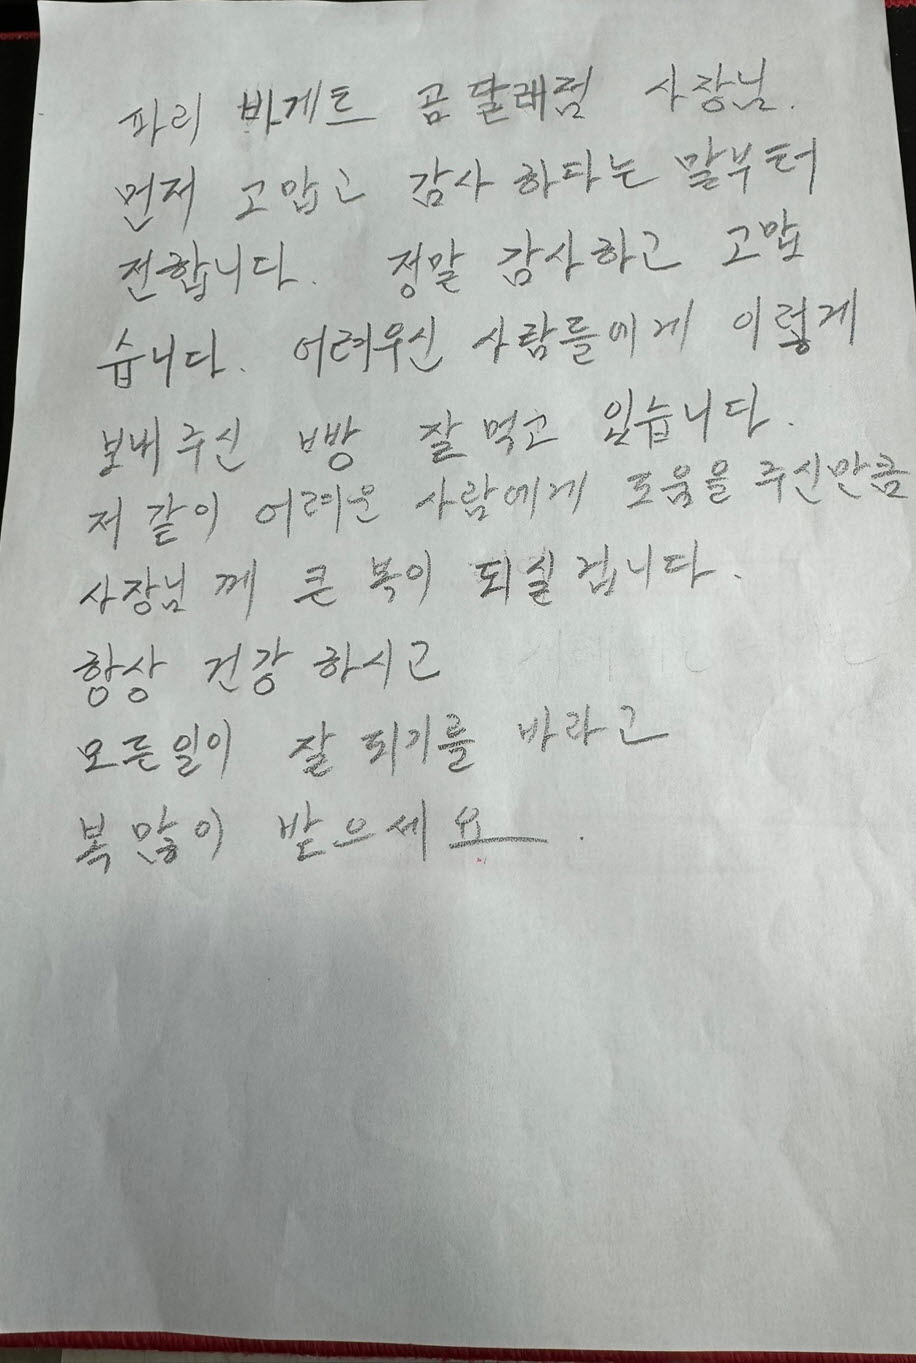 파리 바게트 곰달래점 사장님.
먼저 고맙고 감사 하다는 말부터
전합니다. 정말 감사하고 고맙
습니다. 어려우신 사람들에게 이렇게
보내주신 빵 잘 먹고 있습니다.
저 같이 어려운 사람에게 도움을 주신만큼
사장님 께 큰 복이 되실 겁니다.
항상 건강 하시고
모든일이 잘 되기를 바라고
복 많이 받으세요.